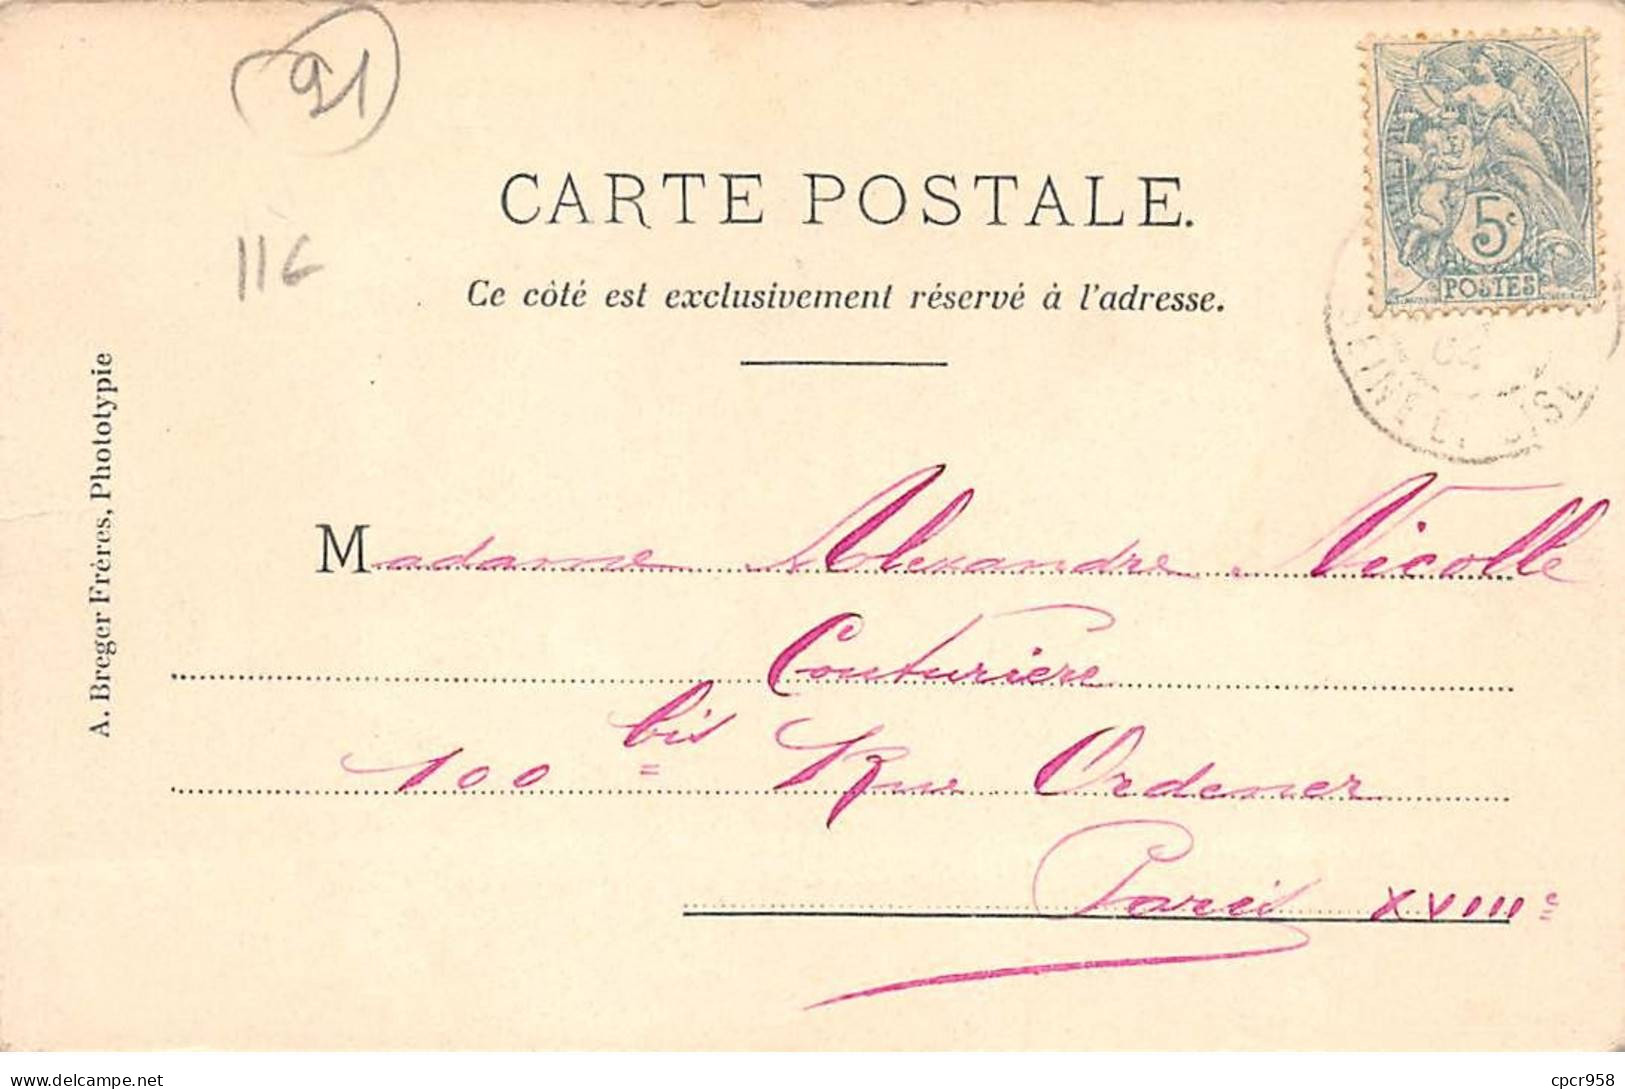 91
116
CARTE POSTALE.
Ce côté est exclusivement réservé à l'adresse.
FRANÇAISE
5c
POSTES
SEINE ET OISE
A. Breger Frères, Phototypie
Madame Alexandre Nicolle
Couturière
100 bis Rue Ordener
Paris XVIIIe
cpcr958